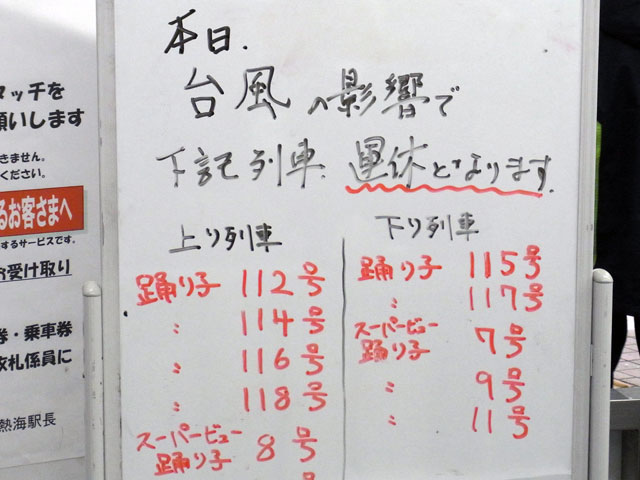 本日、
台風の影響で
下記列車、運休となります。
上り列車
踊り子 112号
〃 114号
〃 116号
〃 118号
スーパービュー
踊り子 8号
号
下り列車
踊り子 115号
〃 117号
スーパービュー
踊り子 7号
〃 9号
〃 11号
タッチを
願いします
きません。
ください。
るお客さまへ
するサービスです。
お受け取り
券・乗車券
改札係員に
熱海駅長